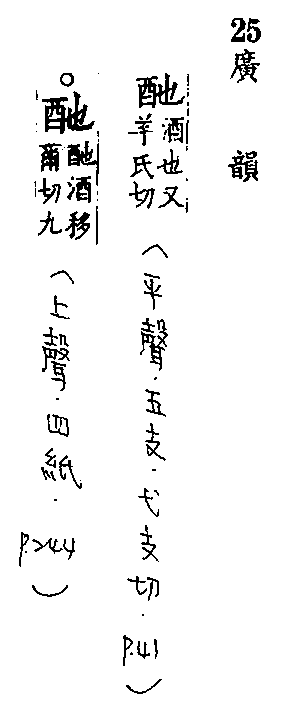 25廣韻
酏酒也又羊氏切（平聲．五支．弋支切．P.41）
酏酏酒移爾切九（上聲．四紙．P.244）